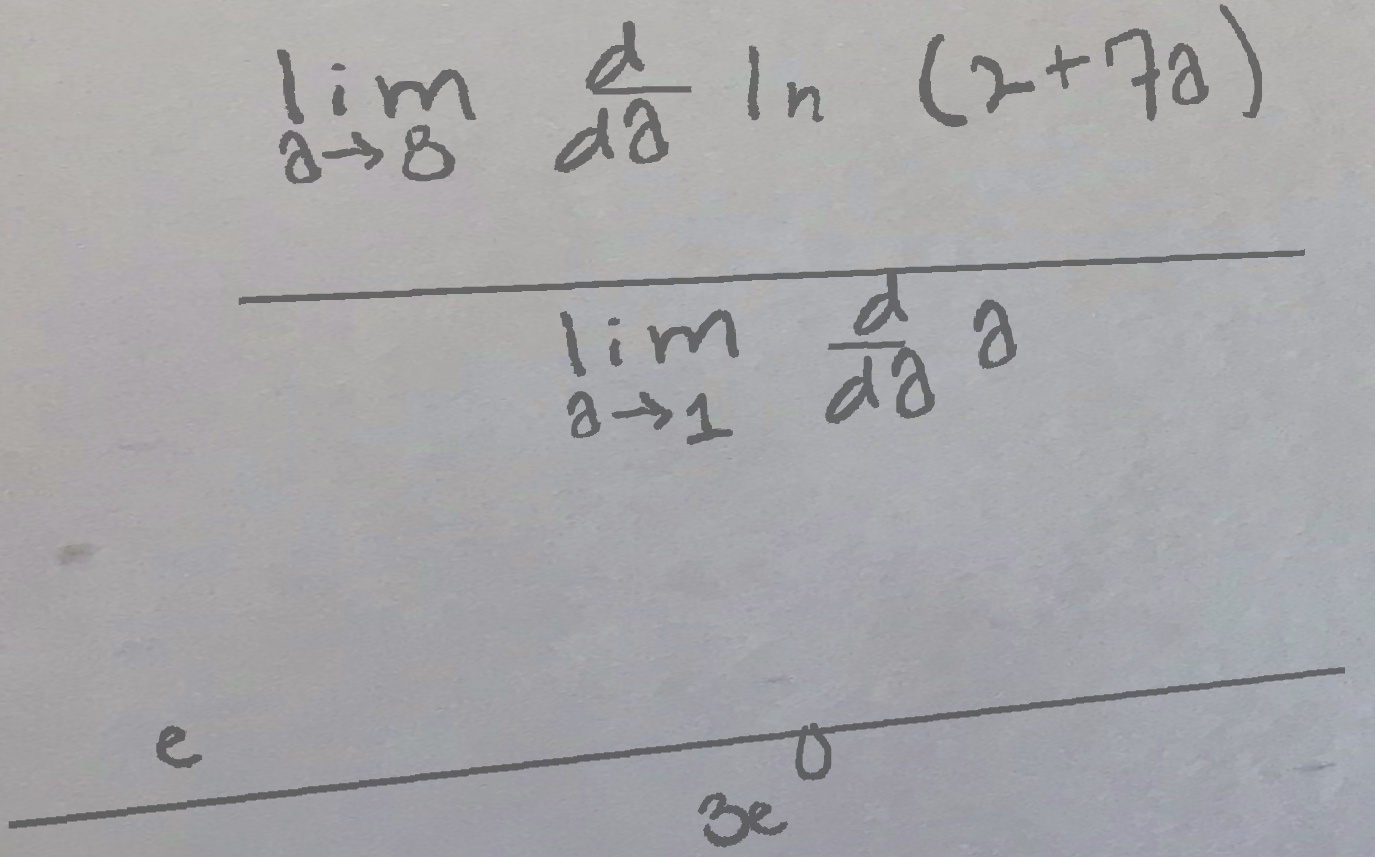 \frac{e^{\frac{\lim_{a \to 8} \frac{d}{da} \ln (2+7a)}{\lim_{a \to 1} \frac{d}{da} a}}}{3e^{0}}